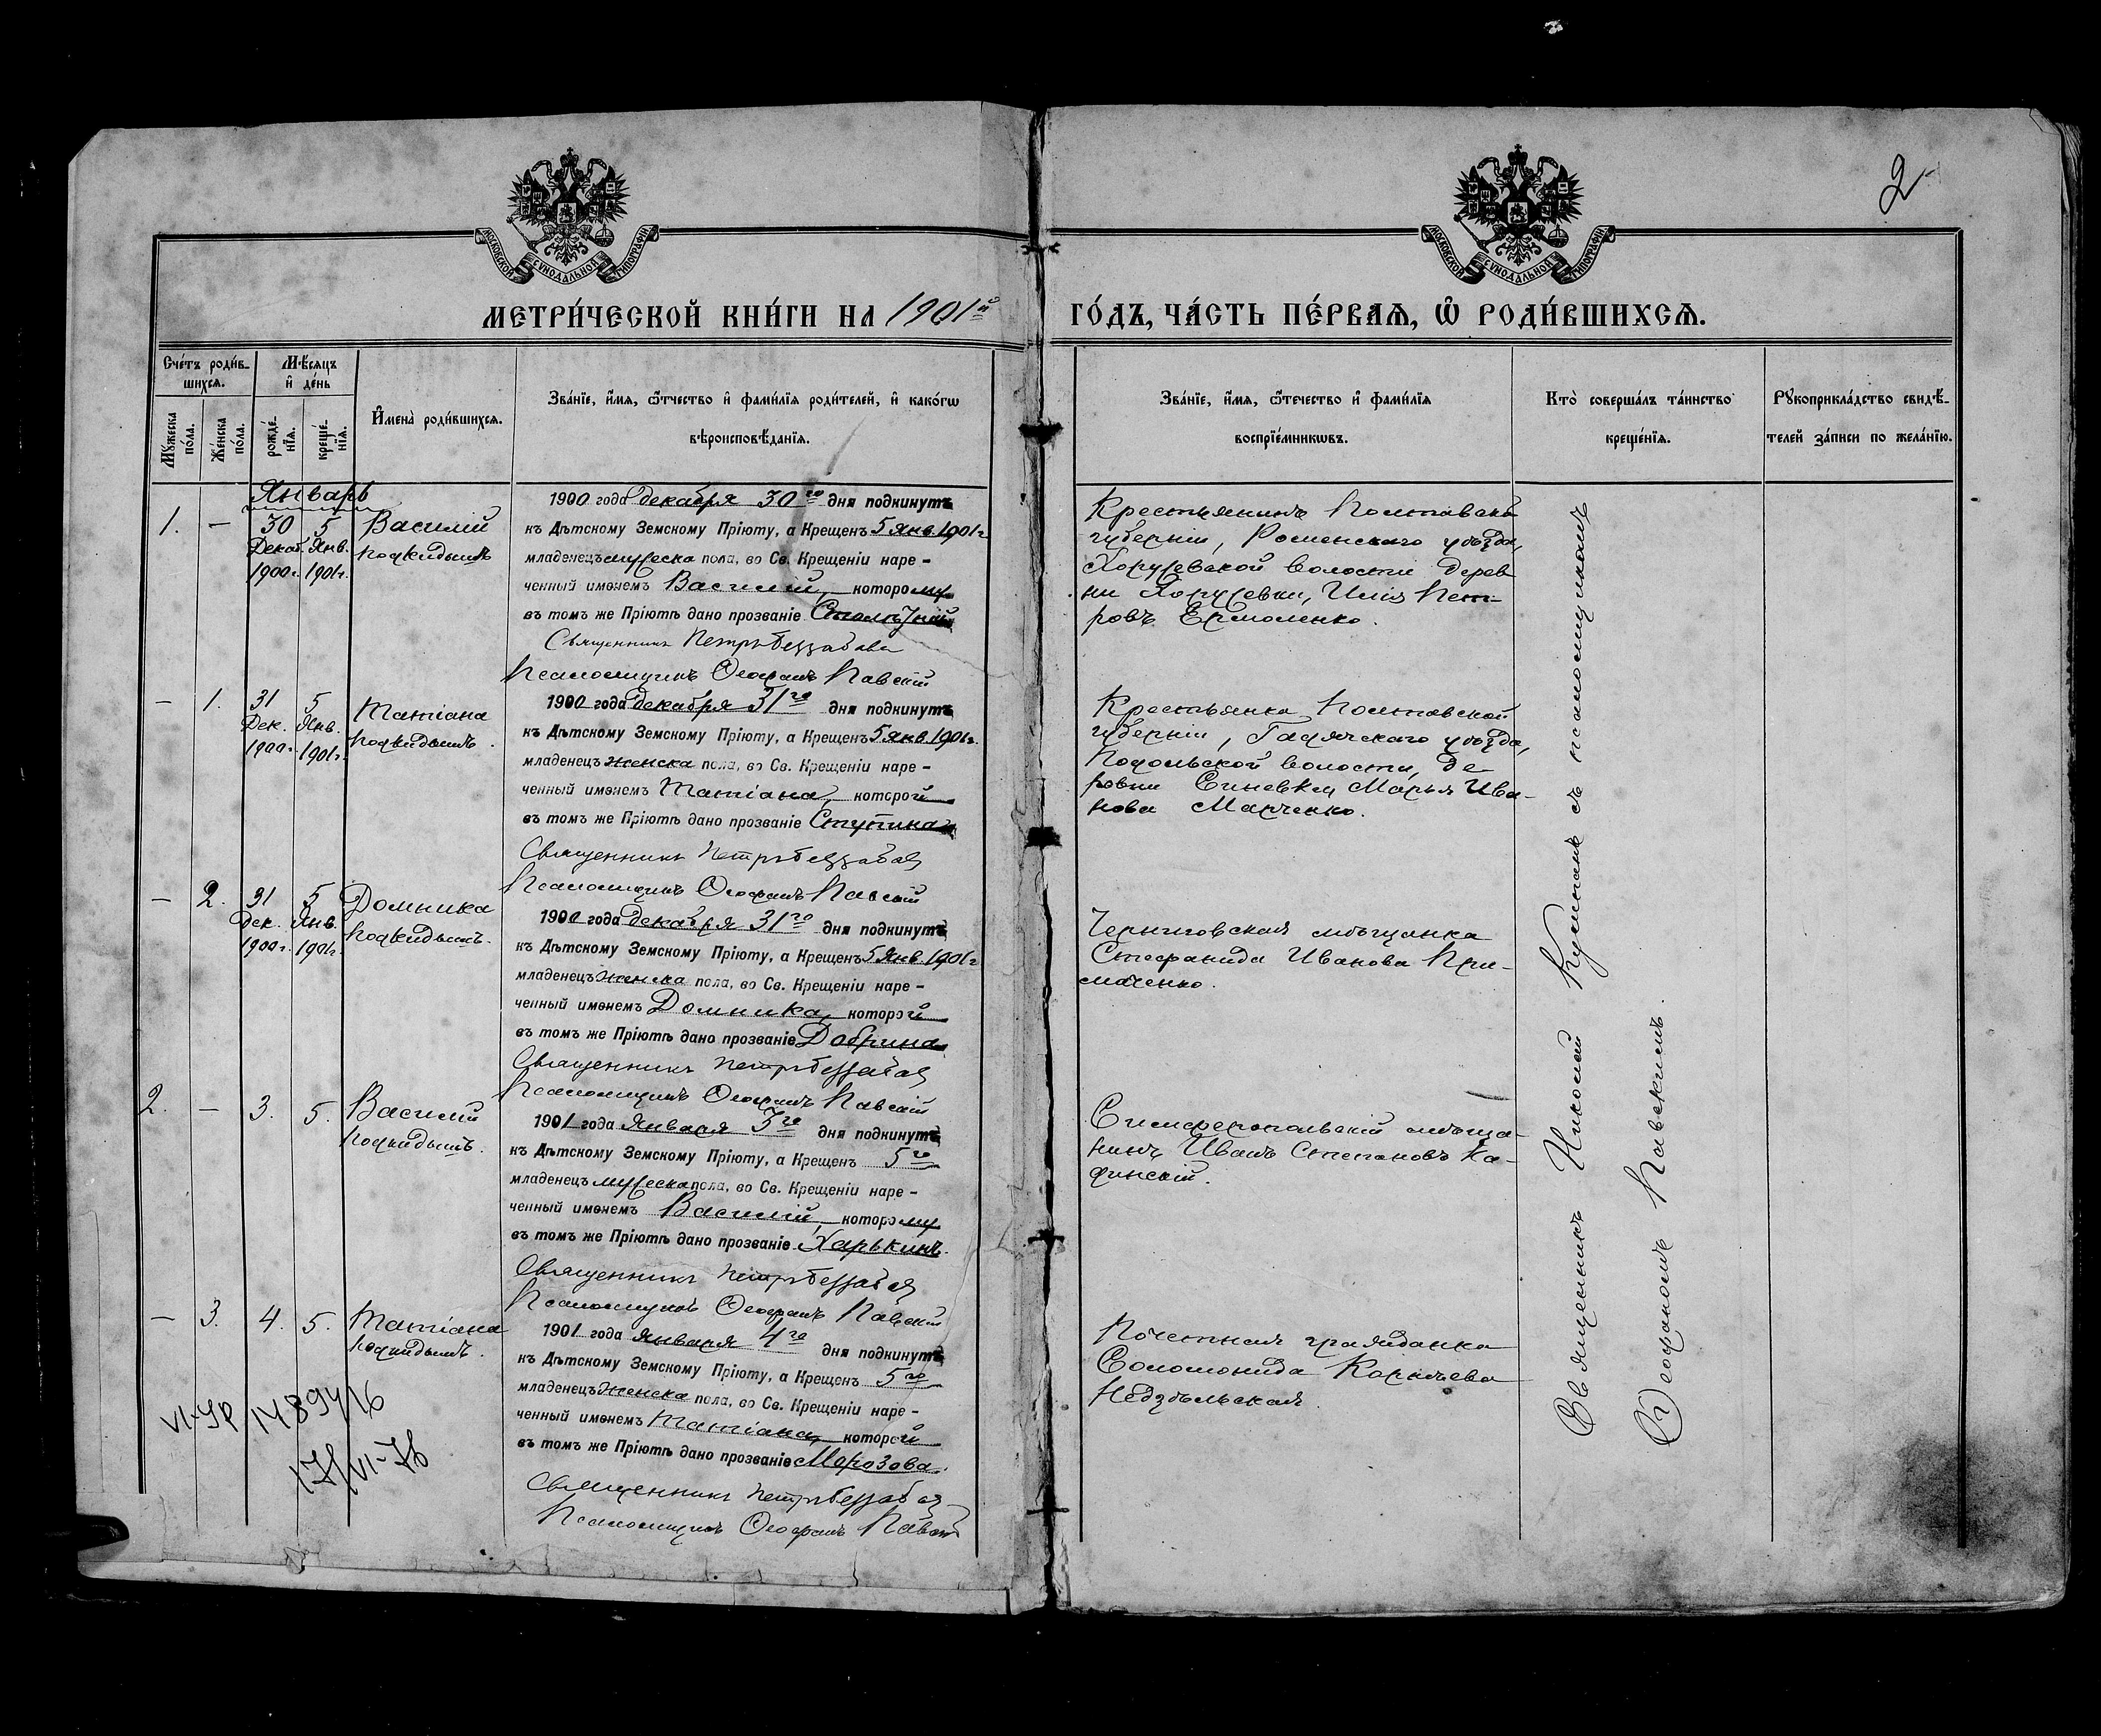 2
МОСКОВСКОЙ СѴНОДАЛЬНОЙ ТИПОГРАФІИ
МОСКОВСКОЙ СѴНОДАЛЬНОЙ ТИПОГРАФІИ
МЕТРИ́ЧЕСКОЙ КНИ́ГИ НА 1901й ГО́ДЪ, ЧА́СТЬ ПЕ́РВАѦ, Ѡ҆ РОДИ́ВШИХСѦ.
Сче́тъ роди́в-
шихсѧ.
Мѣ́сѧцъ
и҆ де́нь
Мꙋ́жеска
по́ла.
Же́нска
по́ла.
рожде́-
нїѧ.
креще́-
нїѧ.
И҆мена̀ роди́вшихсѧ.
Зва́нїе, и҆́мѧ, ѻ҆́тчество и҆ фами́лїѧ роди́телей, и҆ како́гѡ
вѣроисповѣ́данїѧ.
Зва́нїе, и҆́мѧ, ѻ҆́течество и҆ фами́лїѧ
воспрїе́мникѡвъ.
Кто̀ соверша́лъ та́инство
креще́нїѧ.
Рꙋкоприкла́дство свидѣ́-
телей за́писи по жела́нїю.
Январь
1. — 30 5 Василій
Декаб. Янв. подкидышъ
1900г. 1901г.
1900 года декабря 30го дня подкинутъ
къ Дѣтскому Земскому Пріюту, а Крещенъ 5 Янв. 1901г
младенецъ мужеска пола, во Св. Крещеніи наре-
ченный именемъ Василій, которому
въ томъ же Пріютѣ дано прозваніе
Священникъ Петръ Беззабава
Псаломщикъ Ѳеофанъ Павскій
Крестьянинъ Полтавской
губерніи, Роменскаго уѣзда,
Хоружевской волости дерев
ни Хоружевки, Илія Пет-
ровъ Ермоленко.
— 1. 31 5 Татіана
Дек. Янв. подкидышъ.
1900г. 1901г.
1900 года декабря 31го дня подкинутъ
къ Дѣтскому Земскому Пріюту, а Крещенъ 5 янв. 1901г.
младенецъ женска пола, во Св. Крещеніи наре-
ченный именемъ Татіана, которой
въ томъ же Пріютѣ дано прозваніе Ступина
Священникъ Петръ Беззабава
Псаломщикъ Ѳеофанъ Павскій
Крестьянка Полтавской
губерніи, Гадячскаго уѣзда,
Подольской волости, де
ревни Синевки Марья Ива-
нова Марченко.
— 2. 31 5 Домника
Дек. Янв. подкидышъ.
1900г. 1901г.
1900 года декабря 31го дня подкинутъ
къ Дѣтскому Земскому Пріюту, а Крещенъ 5 Янв. 1901г
младенецъ женска пола, во Св. Крещеніи наре-
ченный именемъ Домника, которой
въ томъ же Пріютѣ дано прозваніе Добрина
Священникъ Петръ Беззабава
Псаломщикъ Ѳеофанъ Павскій
Черниговская мѣщанка
Стефанида Иванова При-
маченко.
2. — 3. 5. Василій
подкидышъ.
1901 года Января 3го дня подкинутъ
къ Дѣтскому Земскому Пріюту, а Крещенъ 5го
младенецъ мужеска пола, во Св. Крещеніи наре-
ченный именемъ Василій, которому
въ томъ же Пріютѣ дано прозваніе Харькинъ.
Священникъ Петръ Беззабава
Псаломщикъ Ѳеофанъ Павскій
Симферопольскій мѣща-
нинъ Иванъ Степановъ Ка-
финскій.
— 3. 4. 5. Татіана
подкидышъ.
1901 года января 4го дня подкинутъ
къ Дѣтскому Земскому Пріюту, а Крещенъ 5го
младенецъ женска пола, во Св. Крещеніи наре-
ченный именемъ Татіана, которой
въ томъ же Пріютѣ дано прозваніе Морозова.
Священникъ Петръ Беззабава
Псаломщикъ Ѳеофанъ Павскій
Почетная гражданка
Соломонида Корнѣева
Недзѣльская.
Священникъ Николай Кусманъ съ псаломщикомъ
Ѳеофаномъ Павскимъ.
VI-УР 1489416
17/VI-76